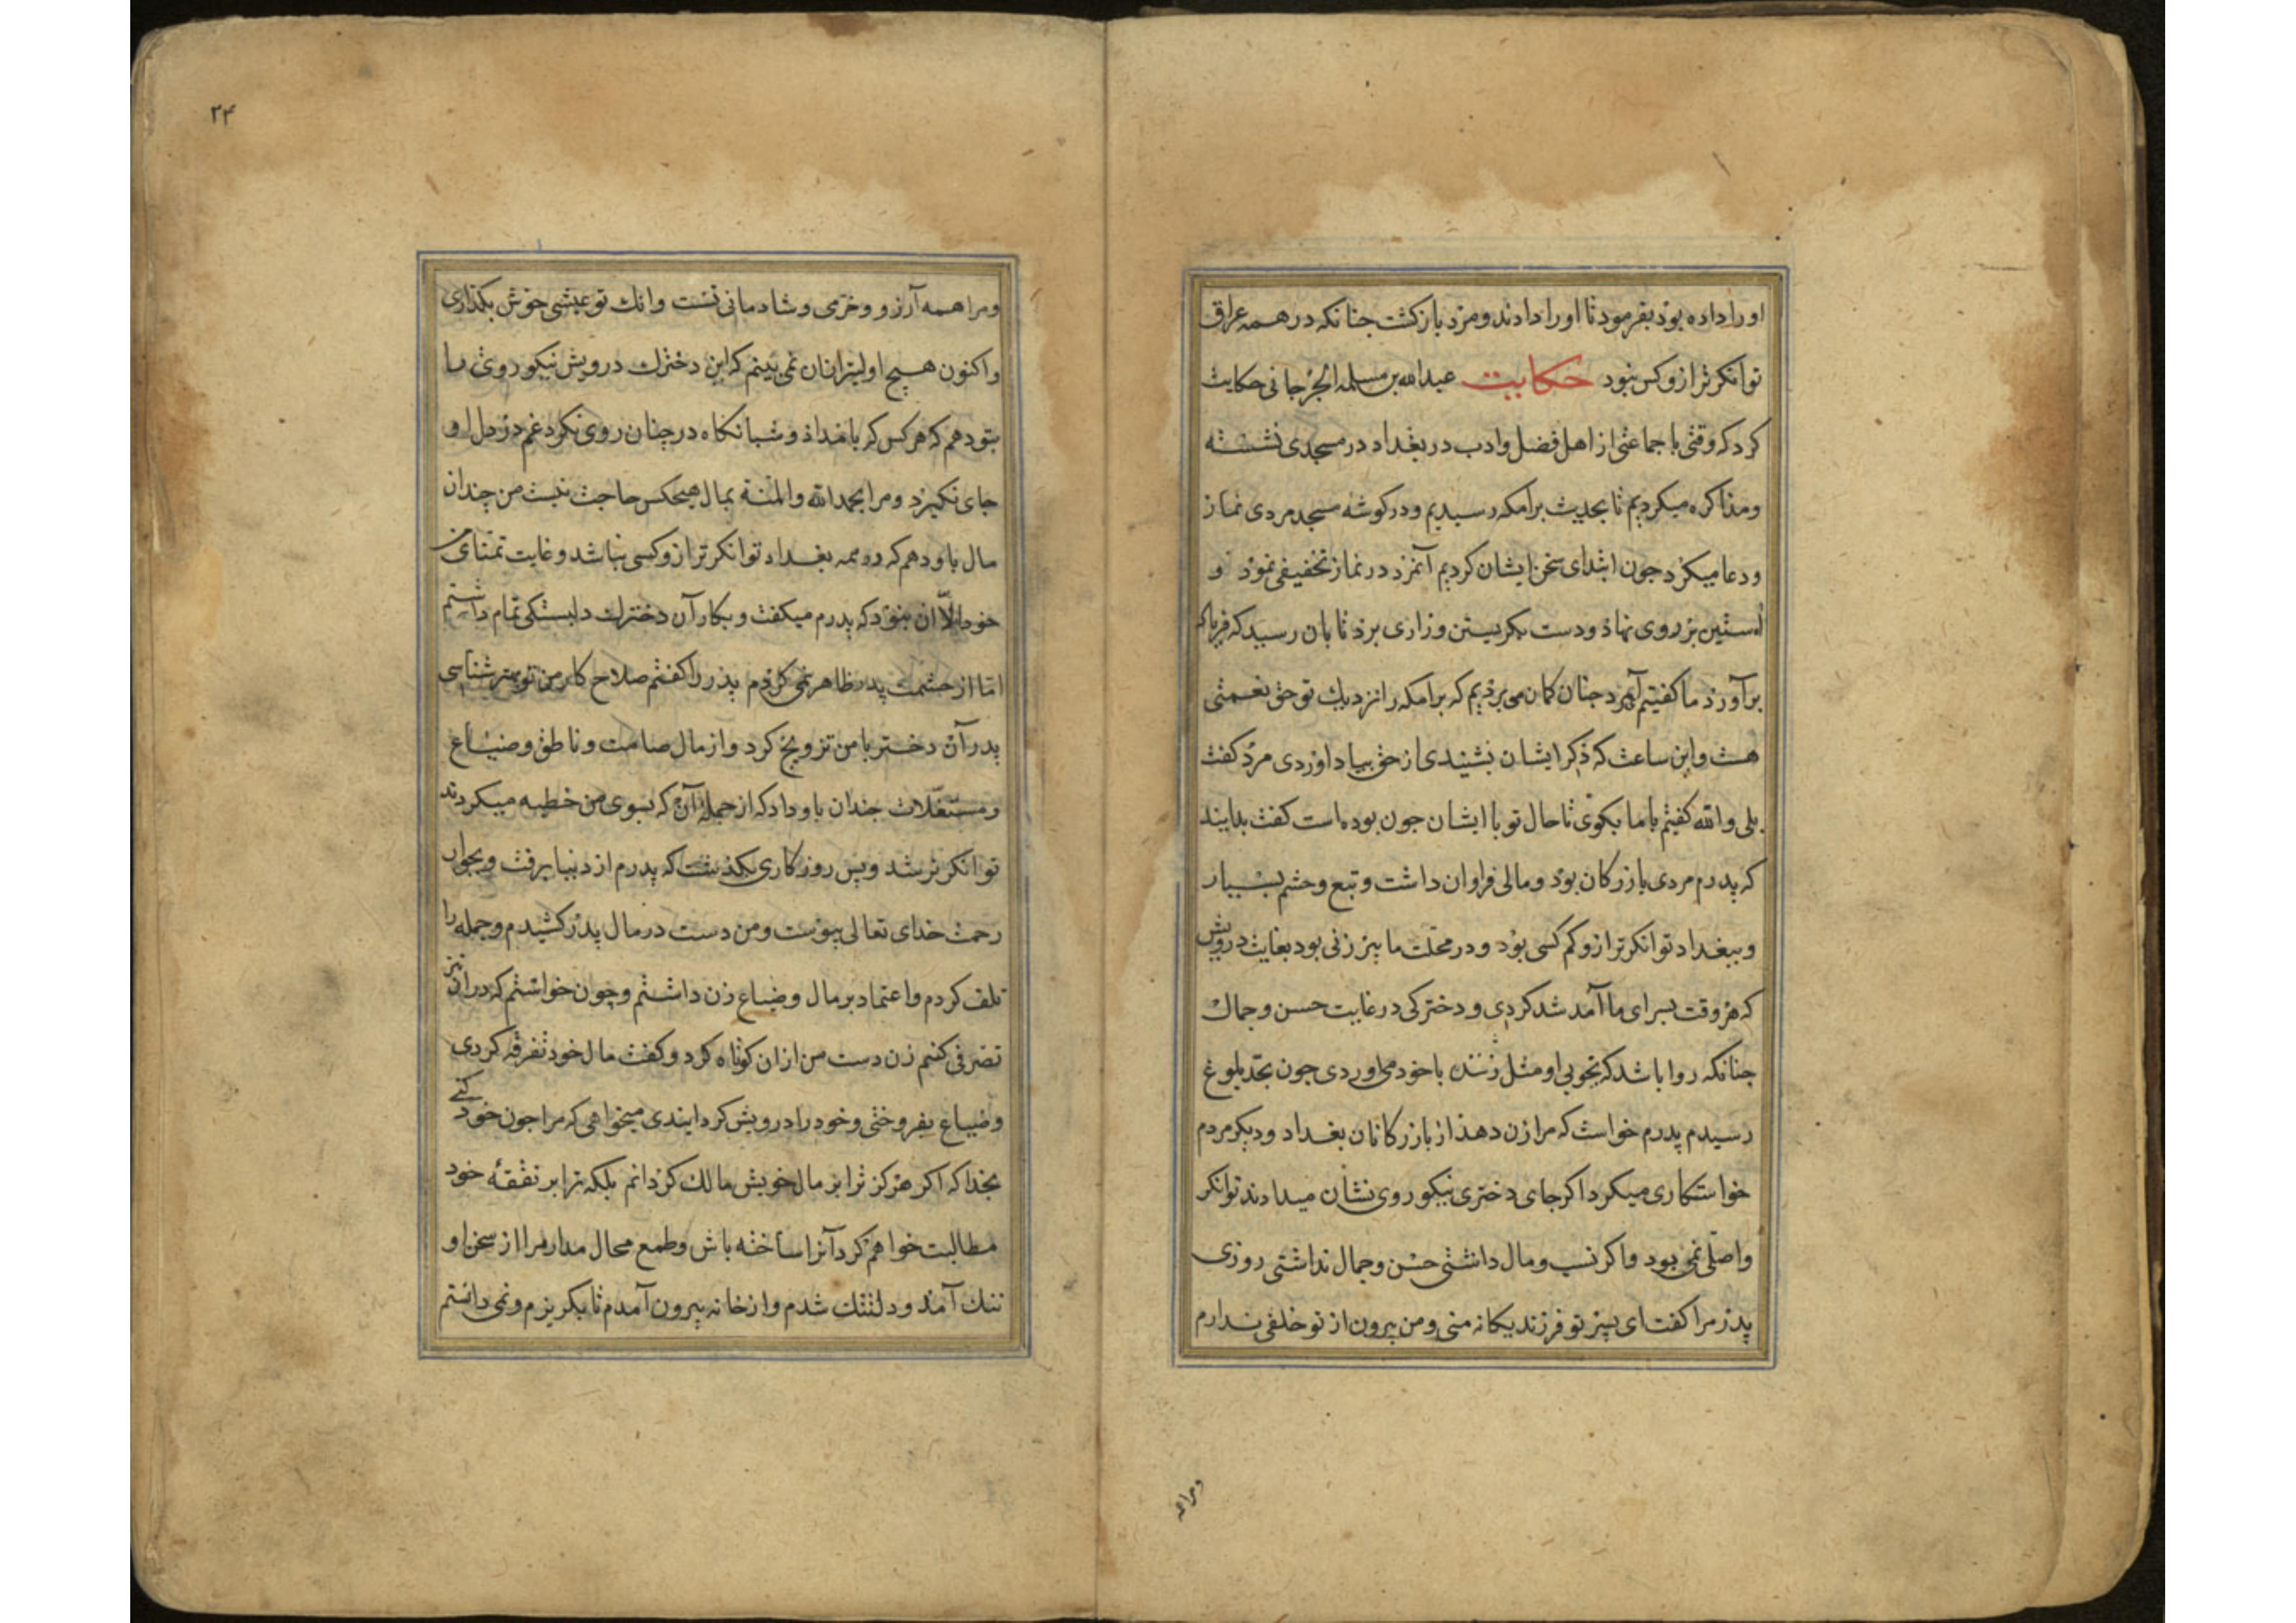 او را داده بود بفرمود تا او را دادند و مرد بازگشت جنانکه در همه عراق
توانکرتر ازو کس نبود حکایت عبدالله بن مسلمه الجرجانی حکایت
کرد که وقتی با جماعتی از اهل فضل و ادب در بغداد در مسجدی نشسته
و مذاکره میکردیم تا بحدیث برامکه رسیدیم و در کوشه مسجد مردی نماز
و دعا میکرد جون ابتدای سخن ایشان کردیم آنمرد در نماز تخفیفی نمود و
آستین بر روی نهاذ و دست بکریستن و زاری برد تا بان رسید که فریاد
برآورد ما کفتیم ای مرد جنان کمان می بریم که برامکه را نزدیک تو حق نعمتی
هست و این ساعت که ذکر ایشان بشنیدی از حق بیاد اوردی مرد کفت
بلی والله کفتیم با ما بکوی تا حال تو با ایشان جون بوده است کفت بدانید
که پدرم مردی بازرکان بود و مالی فراوان داشت و تبع و حشم بسیار
و ببغداد توانکرتر ازو کم کسی بود و در محلت ما پیر زنی بود بغایت درویش
که هر وقت بسرای ما آمد شد کردی و دخترکی در غایت حسن و جمال
جنانکه روا باشد که بخوبی او مثل زنند با خود می اوردی جون بحد بلوغ
رسیدم پدرم خواست که مرا زن دهذ از بازرکانان بغداد و دیکر مردم
خواستکاری میکرد اکر جای دختری نیکو روی نشان میدادند توانکر
و اصلی نمی بود و اکر نسب و مال داشتی حسن و جمال نداشتی روزی
پدر مرا کفت ای پسر تو فرزند یکانه منی و من بیرون از تو خلفی ندارم
ومراهمه
۲۴
و مرا همه آرزو و خرمی و شادمانی تست و انک تو عیشی خوش بکذاری
و اکنون هیچ اولیتر ازان نمی بینم که این دخترک درویش نیکو روی را
بتو دهم که هر کس که بامداذ و شبانکاه در چنان روی نکرد غم در دل او
جای نکیرد و مرا بحمدالله و المنة بمال هیچکس حاجت نیست من چندان
مال باو دهم که در همه بغداد توانکرتر ازو کسی نباشد و غایت تمنای من
خود الا ان نبود که پدرم میکفت و بکار آن دخترک دلبستکی تمام داشتم
اما از حشمت پدر ظاهر نمی کردم پدر را کفتم صلاح کار من تو بهتر شناسی
پدر آن دختر با من تزویج کرد و از مال صامت و ناطق و ضیاع
و مستغلات جندان باو داد که از جمله آن که بسوی من خطبه میکردند
توانکرتر شد و پس روزکاری بکذشت که پدرم از دنیا برفت و بجوار
رحمت خدای تعالی پیوست و من دست در مال پدر کشیدم و جمله را
تلف کردم و اعتماد بر مال و ضیاع زن داشتم و چون خواستم که در ان نیز
تصرفی کنم زن دست من ازان کوتاه کرد و کفت مال خود تفرقه کردی
و ضیاع بفروختی و خود را درویش کردایندی میخواهی که مرا جون خود کنی
بخدا که اکر هرکز ترا بر مال خویش مالک کردانم بلکه ترا بر نفقه خود
مطالبت خواهم کرد آنرا ساخته باش و طمع محال مدار مرا از سخن او
ننک آمد و دلتنک شدم و از خانه بیرون آمدم تا بکریزم و نمی دانستم